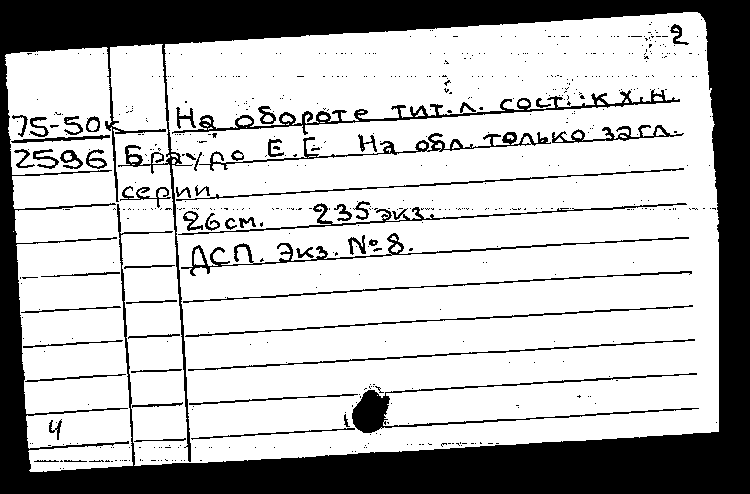 2
75-50к На обороте тит.л. сост.: к.х.н.
2596 Браудо Е.Е. На обл. только загл.
серии.
26см. 235экз.
ДСП. Экз. №8.
4